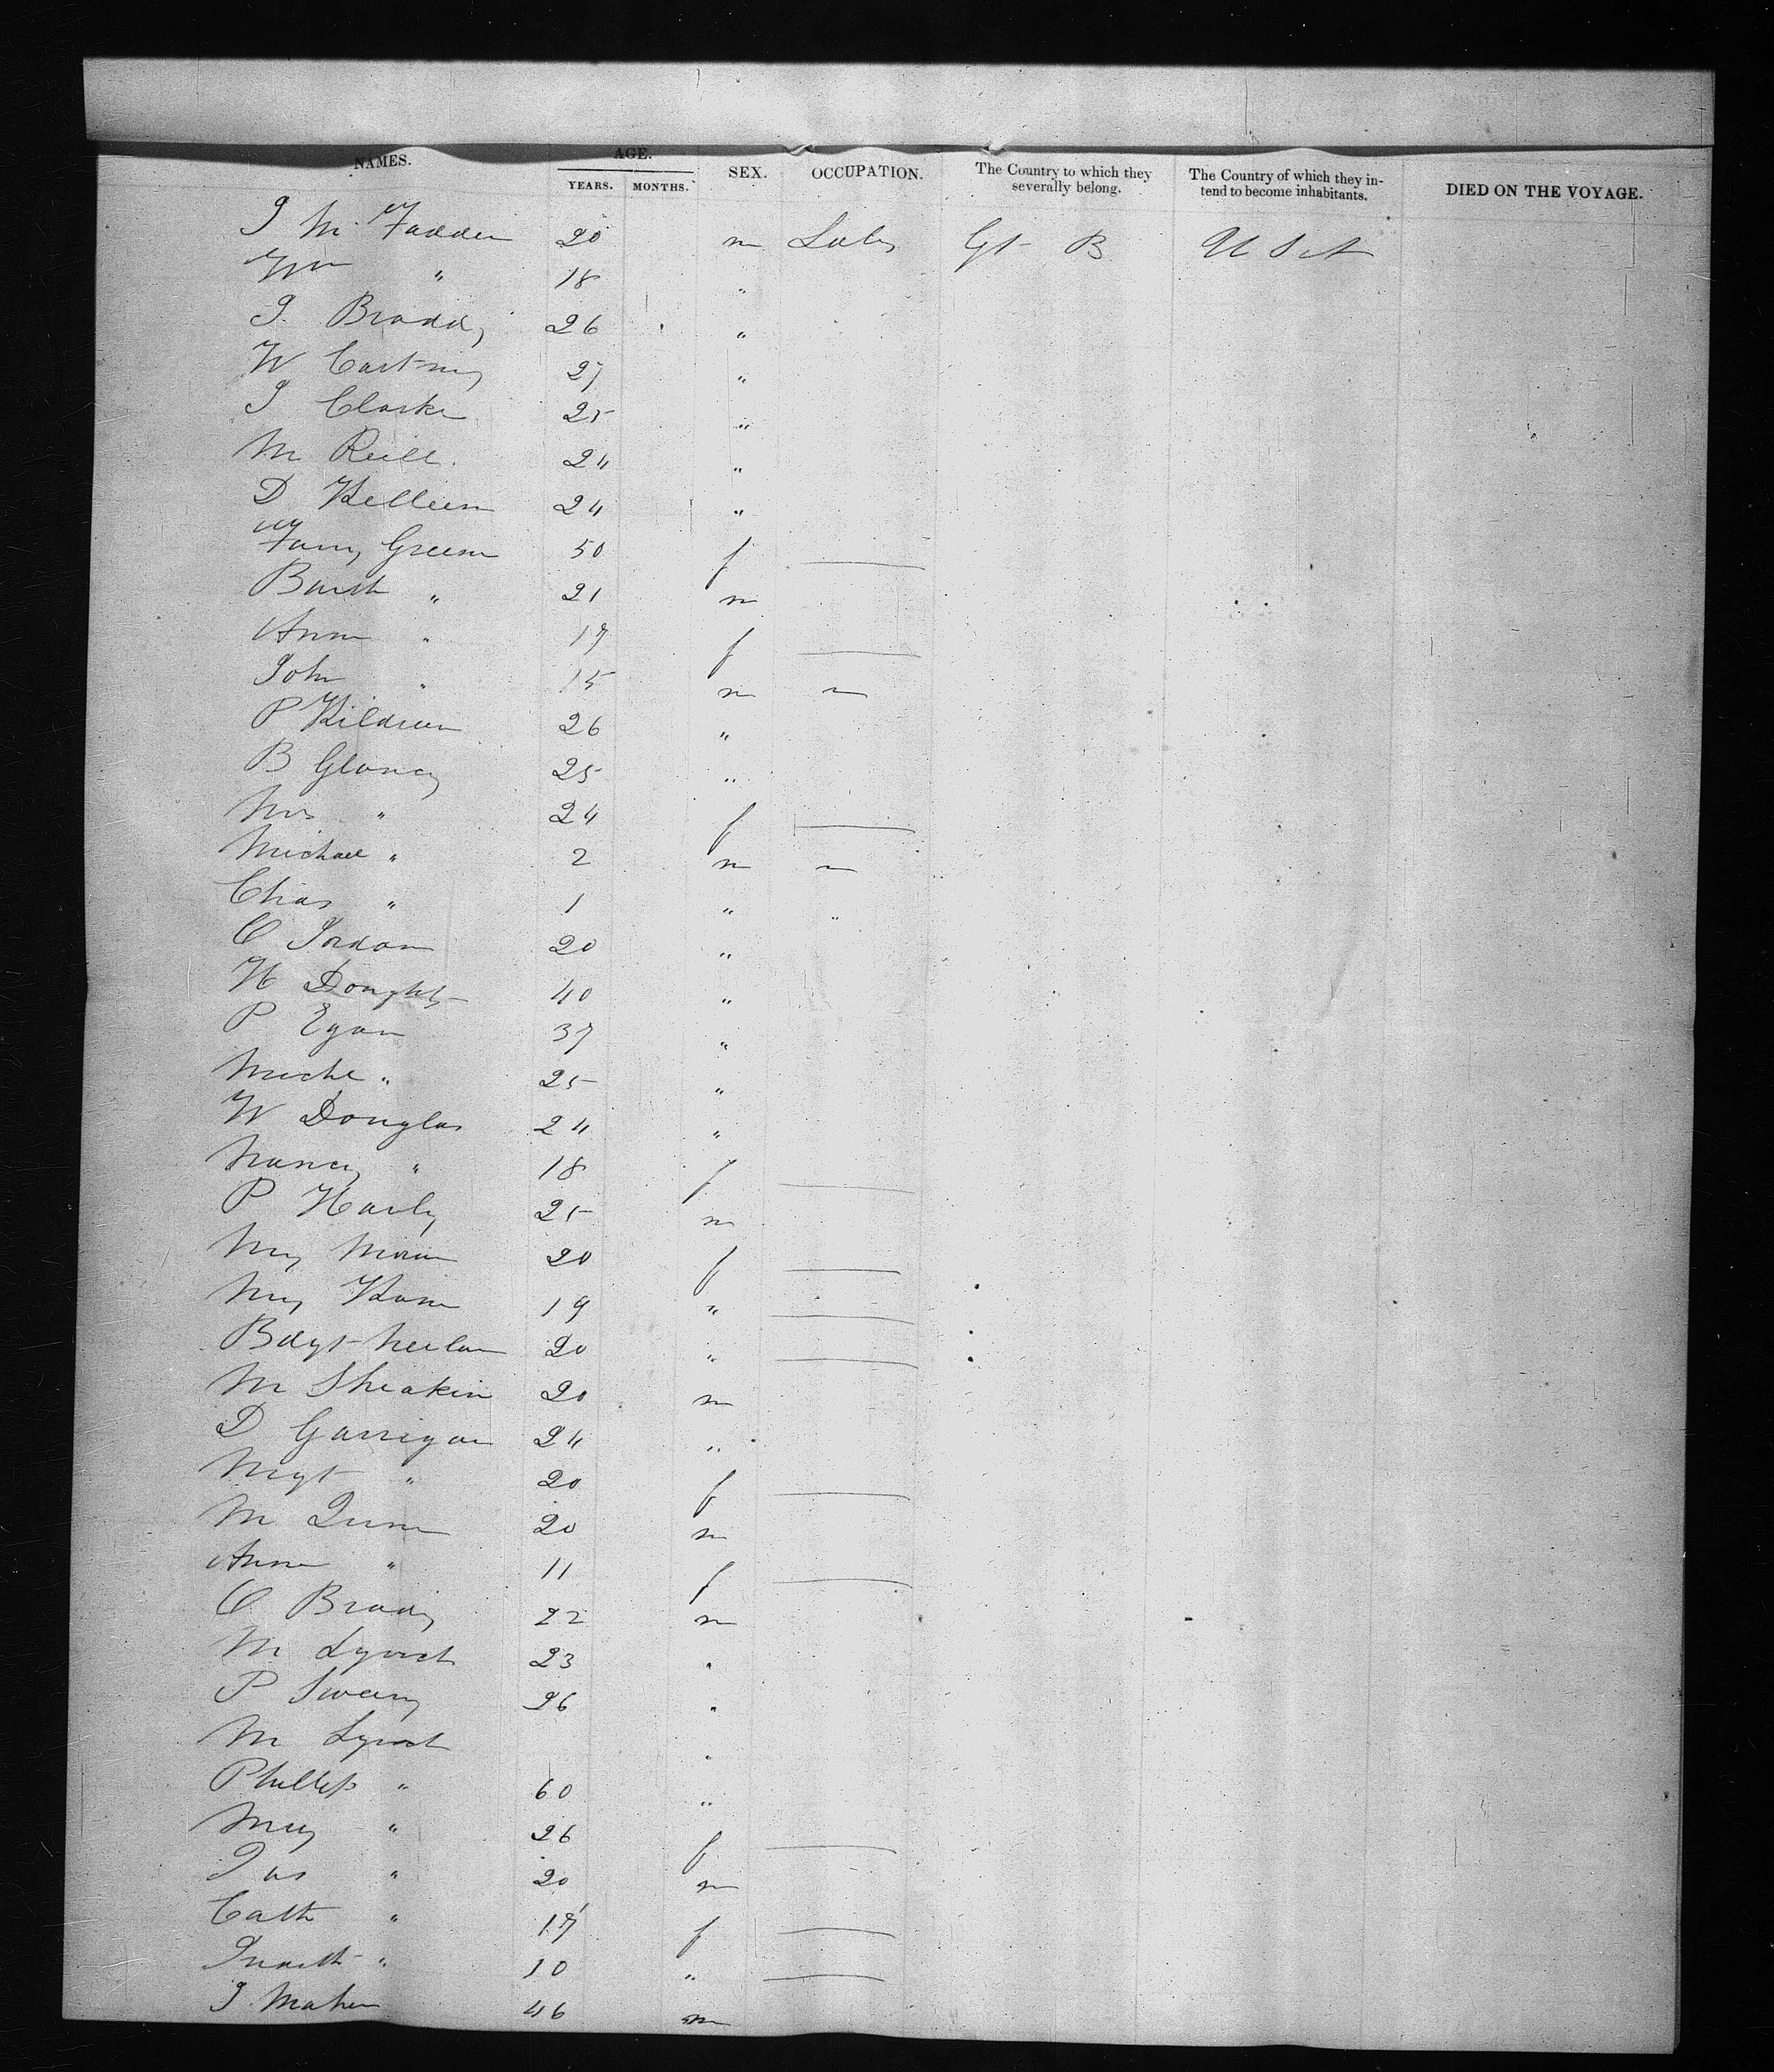 NAMES. AGE. SEX. OCCUPATION. The Country to which they severally belong. The Country of which they intend to become inhabitants. DIED ON THE VOYAGE.
YEARS. MONTHS.
J Mc Fadden 20 m Labr Gt B U S A
Wm " 18 "
J. Brady 26 "
W Cartney 27 "
J Clarke 25 "
M Reill. 24 "
D Kelleen 24 "
Fanny Green 50 f
Barth " 21 m
Ann " 17 f
John " 15 m
P Kildreen 26 "
B Glancy 25 "
Mrs " 24 f
Michael " 2 m
Chas " 1 " "
C Jordan 20 "
H Doughty 40 "
P Egan 37 "
Michl " 25 "
W Douglas 24 "
Nancy " 18 f
P Harly 25 m
My Moran 20 f
My Kane 19 "
Bdgt Neelan 20 "
M Sheakin 20 m
D Garrigan 24 "
Mgt " 20 f
M Quinn 20 m
Anne " 11 f
C Brady 22 m
M Lynch 23 "
P Sweeny 26 "
M Lynch "
Phillip " 60 "
Mary " 26 f
Jas " 20 m
Cath " 17 f
Judith " 10 "
J Maher 46 m